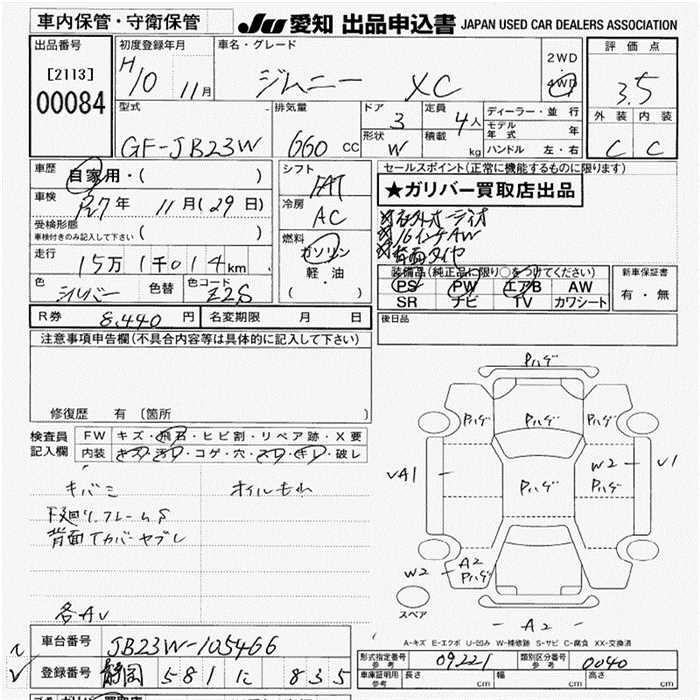 車内保管・守衛保管
JU 愛知 出品申込書 JAPAN USED CAR DEALERS ASSOCIATION
出品番号
[2113]
00084
初度登録年月
H10 11月
車名・グレード
ジムニー XC
2WD
4WD
評価点
3.5
外装 内装
C C
型式
GF-JB23W
排気量
660 CC
ドア
3
定員
4人
形状
W
積載
kg
ディーラー・並行
モデル年式 年
ハンドル 左・右
車歴
自家用・( )
車検
R27年 11月(29日)
受検形態
車検付きのみ記入して下さい ( )
走行
15万1千014km
色
シルバー
色替
色コード
Z2S
シフト
FAT
冷房
AC
燃料
ガソリン
軽・油
( )
セールスポイント(正常に機能するものに限ります)
★ガリバー買取店出品
社外オーディオ
16インチAW
背面タイヤ
装備品(純正品に限り○をつけてください)
PS PW エアB AW
SR ナビ TV カワシート
新車保証書
有・無
後日品
R券 8,440円
名変期限 月 日
注意事項申告欄(不具合内容等は具体的に記入して下さい)
修復歴 有〔箇所 〕
検査員記入欄
FW キズ・飛石・ヒビ割・リペア跡・X要
内装 キズ・汚れ・コゲ・穴・スレ・キレ・破レ
キバミ
オイルもれ
下廻り.フレームS
背面Tカバーヤブレ
各AU
パハゲ
パハゲ パハゲ パハゲ
VA1 W2 V1
パハゲ パハゲ
W2 A2
パハゲ
スペア
A2
A-キズ E-エクボ U-凹み W-補修跡 S-サビ C-腐食 XX-交換済
車台番号 JB23W-105466
登録番号 静岡 581 に 835
形式指定番号
参考
09221
類別区分番号
参考
0040
車庫証明用
参考
長さ cm 幅 cm 高さ cm